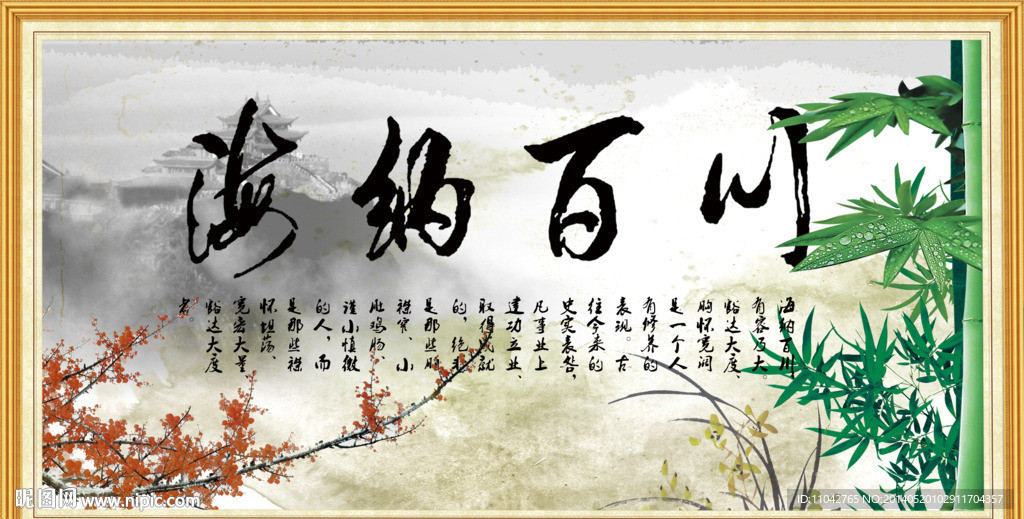 海纳百川
海纳百川
有容乃大。
豁达大度、
胸怀宽阔
是一个人
有修养的
表现。古
往今来的
史实表告，
凡事业上
建功立业、
取得成就
的，绝非
是那些胸
襟窄、小
肚鸡肠、
谨小慎微
的人，而
是那些襟
怀坦荡、
宽宏大量
豁达大度
者
昵图网 www.nipic.com
ID:11042765 NO:20140520102911704357